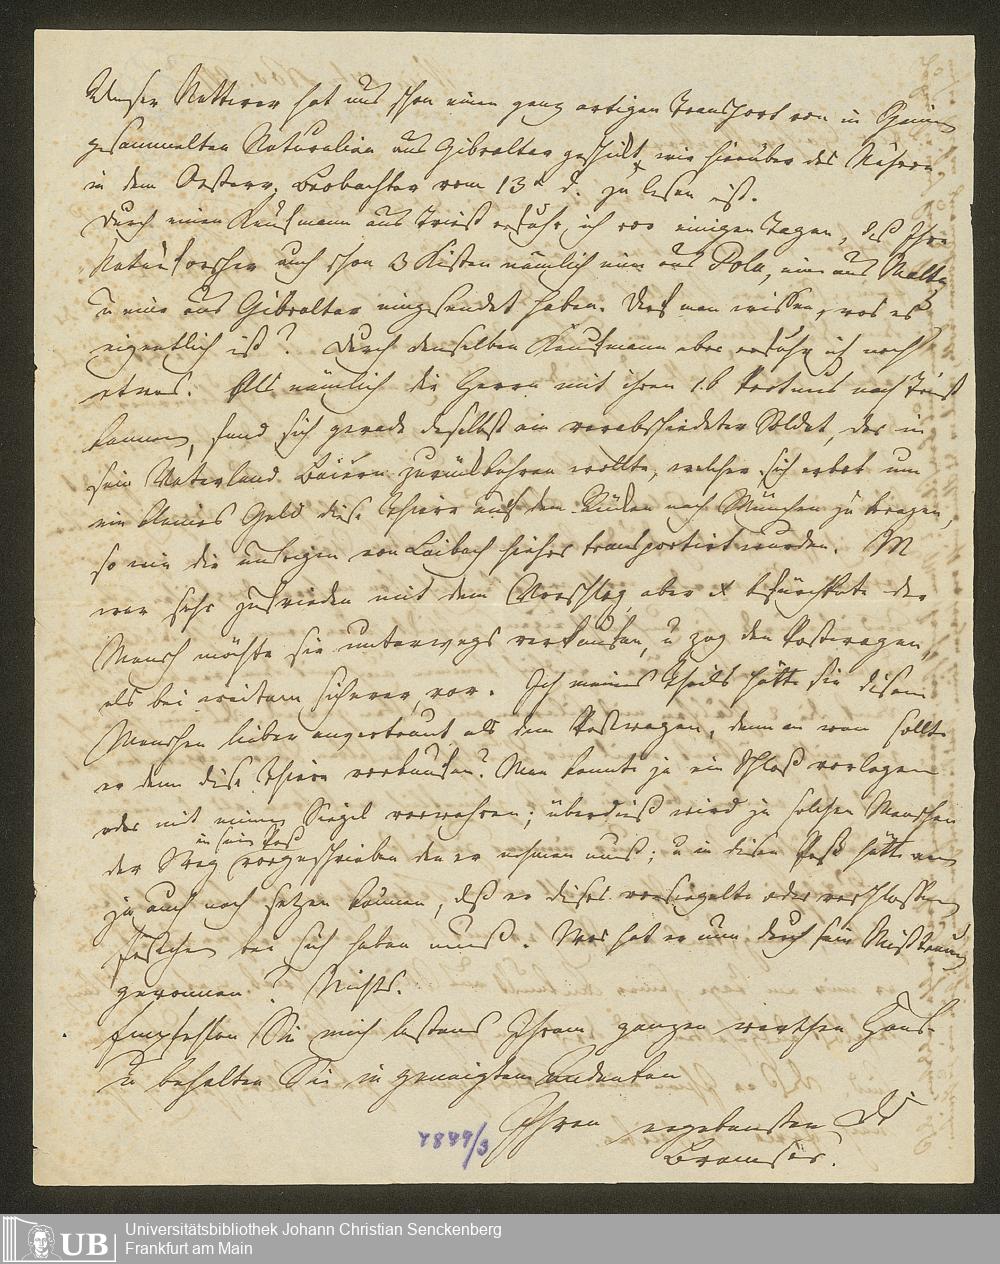 Unser Natterer hat uns schon einen ganz artigen Transport von in Spanien
gesammelten Naturalien aus Gibraltar geschickt, wie hierüber das Nähere
in dem Oesterr. Beobachter vom 13t d. zu lesen ist.
Durch einen Kaufmann aus Triest erfuhr ich vor einigen Tagen, daß Ihre
Naturforscher auch schon 3 Kisten nämlich eine aus Pola, eine aus Malta
u eine aus Gibraltar eingesendet haben. Darf man wissen, was es
eigentlich ist? Durch denselben Kaufmann aber erfuhr ich noch
etwas. Als nämlich die Herrn mit ihren 16 Proteus nach Triest
kamen, fand sich gerade daselbst ein verabschiedeter Soldat, der in
sein Vaterland Baiern zurückkehren wollte, welcher sich erbot um
ein kleines Geld diese Thiere auf dem Rücken nach München zu tragen,
so wie die unsrigen von Laibach hieher transportirt wurden. M
war sehr zufrieden mit dem Vorschlag, aber X befürchtete der
Mensch möchte sie unterwegs verkaufen, u zog den Postwagen,
als bei weitem sicherer, vor. Ich meines Theils hätte sie diesem
Menschen lieber angvertraut als dem Postwagen, denn an wen sollte
er denn diese Thiere verkaufen? Man konnte ja ein Schloß vorlegen
oder mit einem Siegel verwahren; überdieß wird ja solchen Menschen
in seinen Paß
der Weg vorgeschrieben den er nehmen muß; u in diesen Paß hätte man
ja auch noch setzen können, daß er dieses versiegelte oder verschlossene
Fäßchen bei sich haben muß. Was hat er nun durch sein Mißtrauen
gewonnen? Nichts.
Empfehlen Sie mich bestens Ihrem ganzen werthen Hause
u behalten Sie in geneigtem Andenken
Ihren ergebensten Dr
Bremser.
1849/3
UB
Universitätsbibliothek Johann Christian Senckenberg
Frankfurt am Main